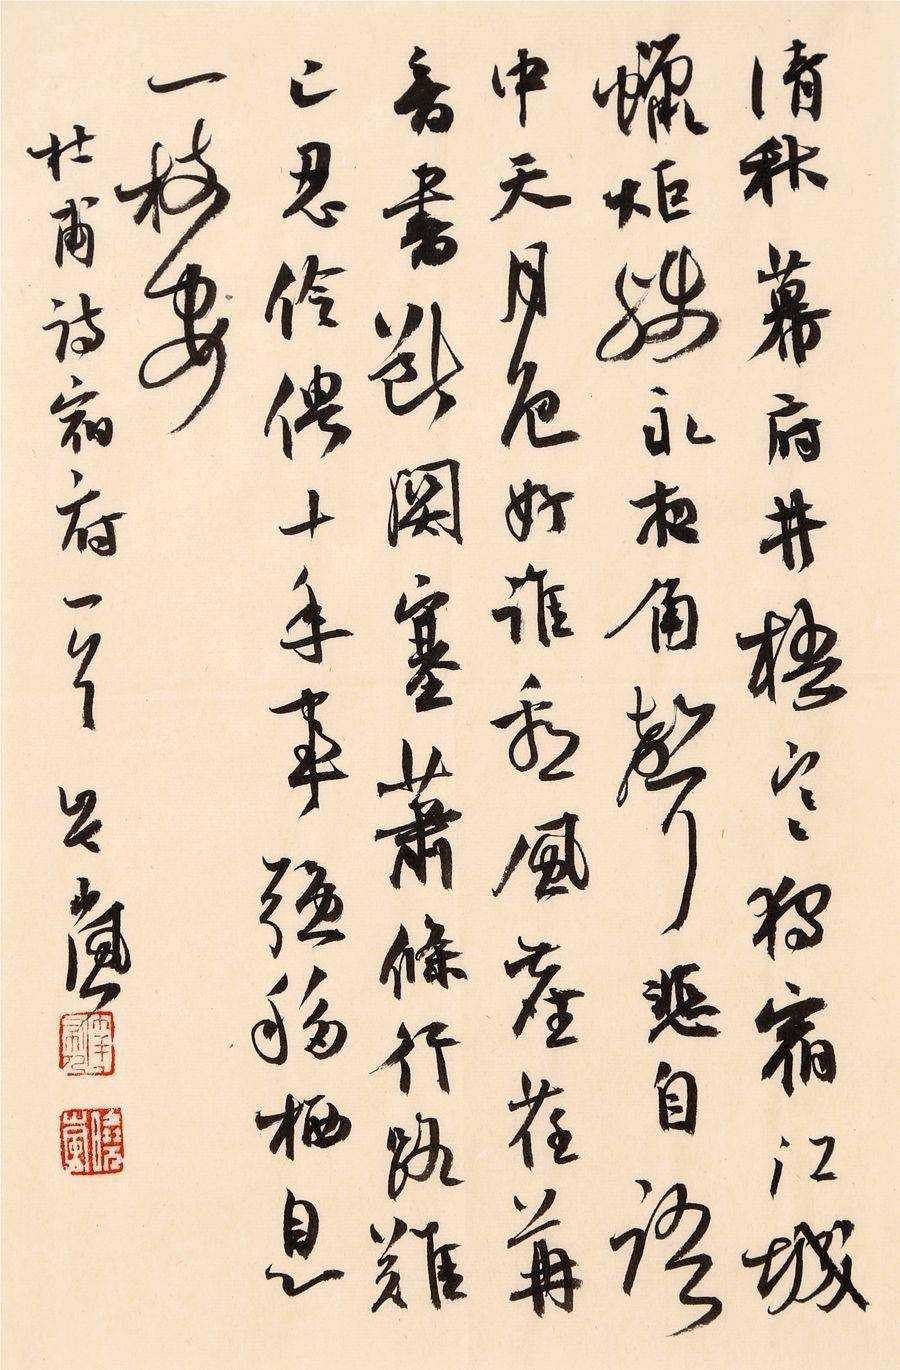 清秋幕府井梧寒獨宿江城
蠟炬殘永夜角聲悲自語
中天月色好誰看風塵荏苒
音書斷關塞蕭條行路難
已忍伶俜十年事強移栖息
一枝安
杜甫詩宿府一首